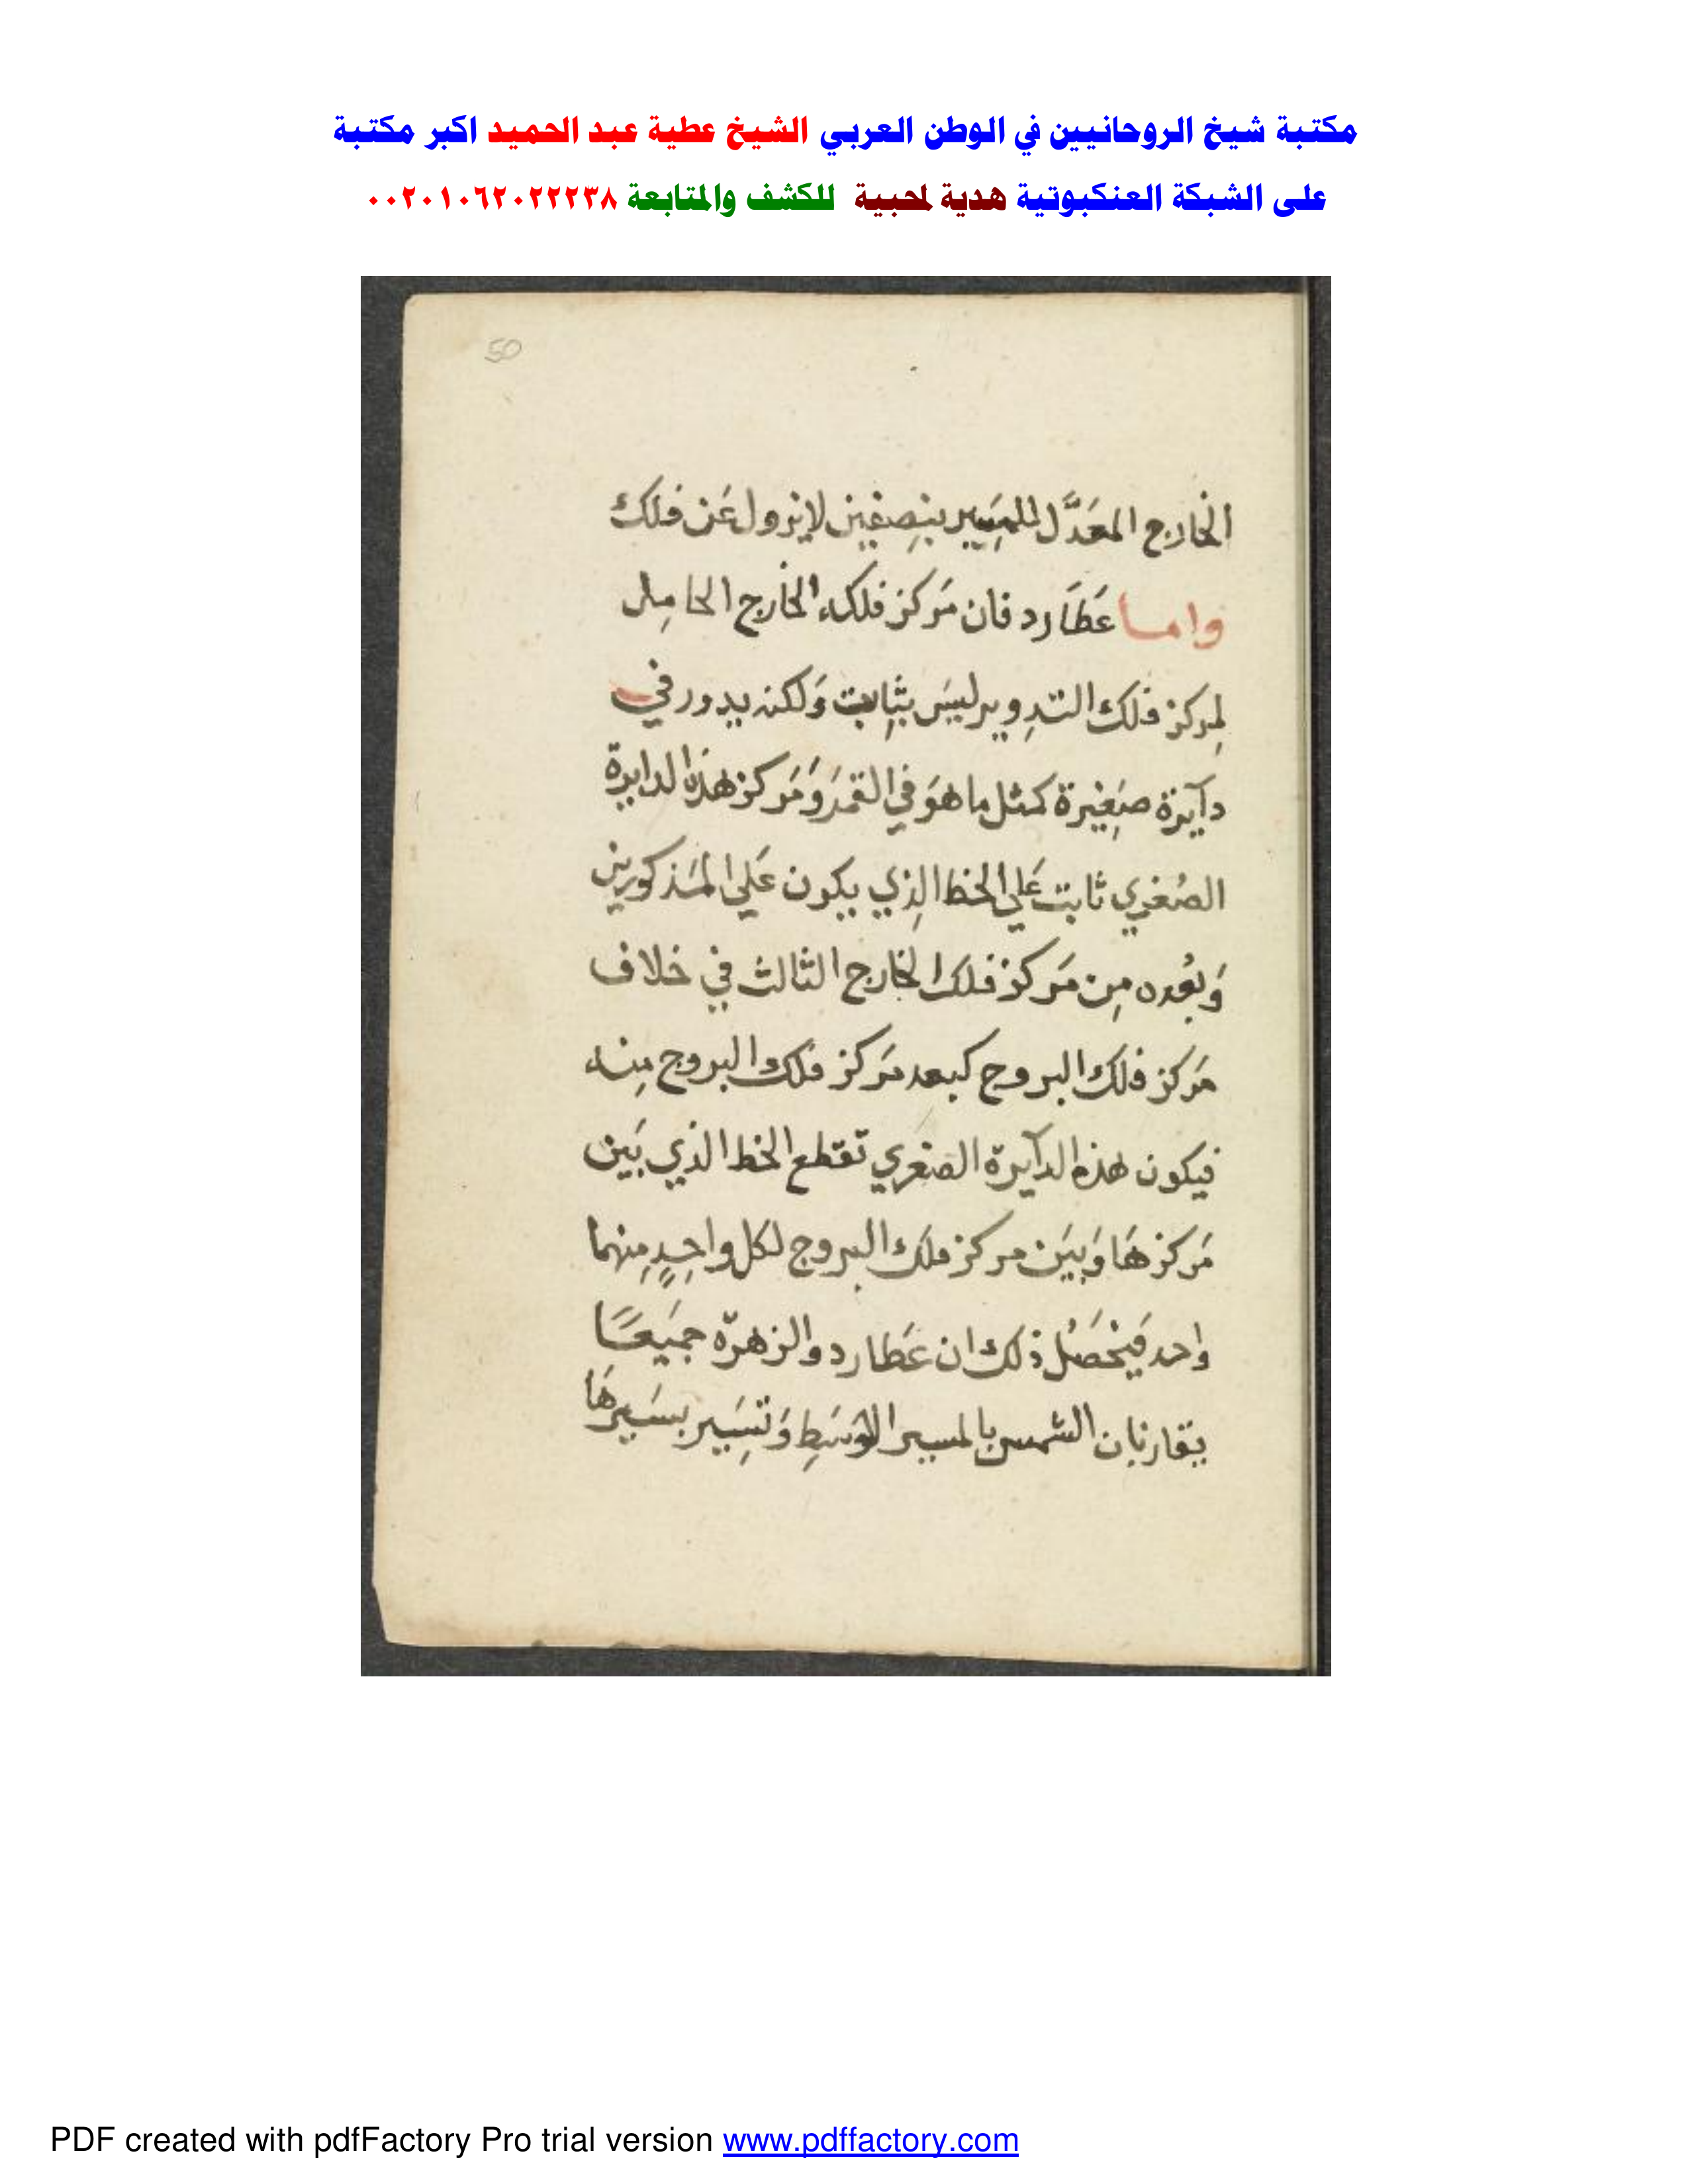 مكتبة شيخ الروحانيين في الوطن العربي الشيخ عطية عبد الحميد اكبر مكتبة
على الشبكة العنكبوتية هدية لمحبية للكشف والمتابعة ٠٠٢٠١٠٦٢٠٢٢٢٣٨
50
الخارج المعَدَّل للمسَير بنِصفين لايزول عَن فلك
واما عَطَارد فان مَركز فلكه الخارج الحامِل
لِمركز فلك التدِوير ليسَ بثِابت وَلكنه يدور في
دآيرة صَغِيرة كمثل ما هوَ في القمَر وَمَركز هذه الدايرة
الصُغري ثابت عَلي الخط الذِي يكون عَلي المَذكورين
وَبُعده مِن مَركز فلك الخارج الثالث في خلاف
مَركز فلك البروج كبعد مَركز فلك البروج مِنه
فيكون هذه الدآيرة الصغري تقطع الخط الذي بَين
مَركزهَا وَبَين مركز فلك البروج لكل واحِدٍ مِنهما
واحد فَيَحْصَلُ ذلك ان عَطارد والزهرة جمَيعًا
يقارنان الشمس بالمسير الاوسَطِ وَتسَيِر بسَيرهَا
PDF created with pdfFactory Pro trial version www.pdffactory.com